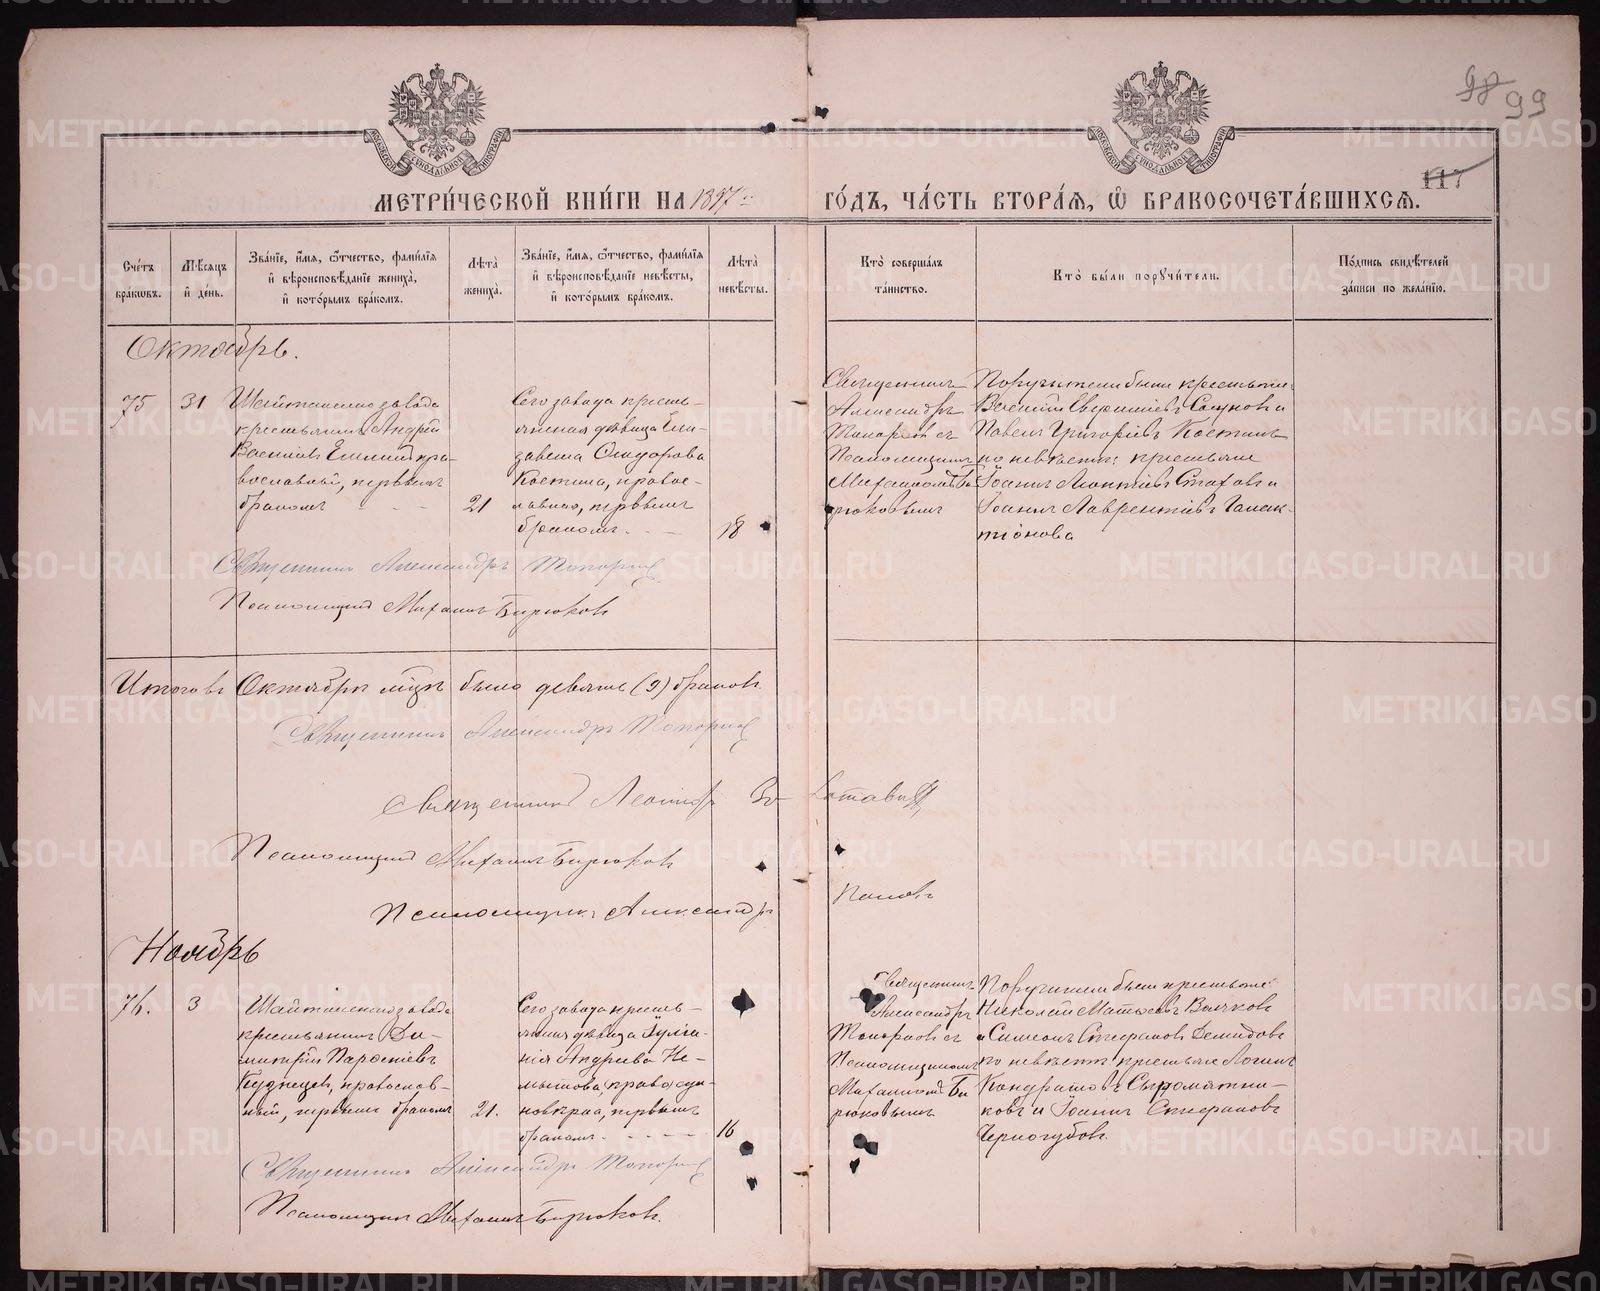 98 99
117
МОСКОВСКОЙ СѴНОДАЛЬНОЙ ТИПОГРАФІИ
МОСКОВСКОЙ СѴНОДАЛЬНОЙ ТИПОГРАФІИ
МЕТРИ́ЧЕСКОЙ КНИ́ГИ НА 1897 ГО́ДЪ, ЧА́СТЬ ВТОРА́Я, Ѿ БРАКОСОЧЕТА́ВШИХСЯ.
Сче́тъ бра́кωвъ.
Мѣ́сяцъ и҆ де́нь.
Зва́нїе, и҆́мя, ѻ҆́тчество, фами́лїя и҆ вѣроисповѣ́данїе жениха̀, и҆ кото́рымъ бра́комъ.
Лѣ́та жениха̀.
Зва́нїе, и҆́мя, ѻ҆́тчество, фами́лїя и҆ вѣроисповѣ́данїе невѣ́сты, и҆ кото́рымъ бра́комъ.
Лѣ́та невѣ́сты.
Кто̀ соверша́лъ та́инство.
Кто̀ бы́ли поручи́тели.
По́дпись свидѣ́телей за́писи по жела́нїю.
Октябрь.
75 31
Шайтанскаго завода
крестьянинъ Андрей
Васильевъ пра-
вославный, первымъ
бракомъ 21
Сего завода кресть-
янская дѣвица Ели-
завета Сидорова
Костина, правос-
лавная, первымъ
бракомъ. 18
Священникъ
Александръ
Топорковъ съ
Псаломщикомъ
Михаиломъ Би-
рюковымъ
Поручители были крестьяне:
Василій Евфиміевъ и
Павелъ Григоріевъ Костинъ
по невѣстѣ: крестьяне
Іоаннъ Леонтіевъ и
Іоаннъ Лаврентіевъ Галак-
тіонова
Священникъ Александръ Топорковъ
Псаломщикъ Михаилъ Бирюковъ
Итого въ Октябрѣ мцѣ было девять (9) браковъ.
Священникъ Александръ Топорковъ
Священникъ Леонидъ
Псаломщикъ Михаилъ Бирюковъ
Псаломщикъ Александръ Поповъ
Ноябрь
76. 3
Шайтанскаго завода
крестьянинъ Ди-
митрій
Кузнецовъ, православ-
ный, первымъ бракомъ 21.
Сего завода кресть-
янская дѣвица Іуліа-
нія Андреева Не-
мытова, православн-
первымъ
бракомъ. 16
Священникъ
Александръ
Топорковъ съ
Псаломщикомъ
Михаиломъ Би-
рюковымъ
Поручители были крестьяне:
Николай Матвѣевъ Волковъ
и Симеонъ Стефановъ Демидовъ
по невѣстѣ крестьяне Логинъ
Кондратовъ Сыромятни-
ковъ и Іоаннъ Стефановъ
Черногубовъ.
Священникъ Александръ Топорковъ
Псаломщикъ Михаилъ Бирюковъ.
METRIKI.GASO-URAL.RU